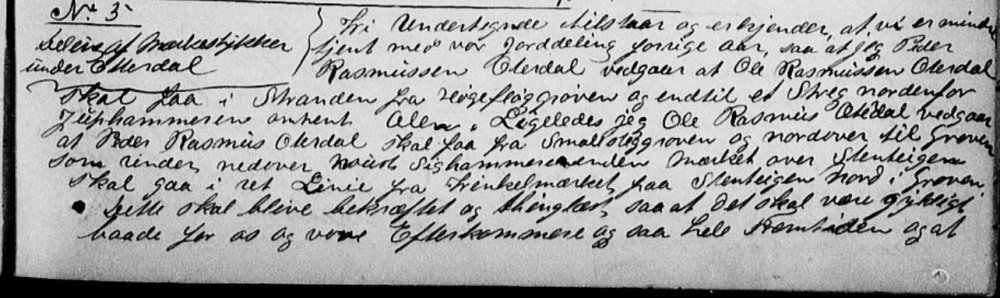 No 5
Deling af Markestykker
under Oterdal
Vi Undertegnede tilstaar og erkjender, at vi er mindre
tjent med vor Jorddeling forrige Aar, saa at jeg Peder
Rasmussen Oterdal vedgaar at Ole Rasmussen Oterdal
skal faa i Stranden fra og endtil et Streg nordenfor
omtrent Alen. Ligeledes jeg Ole Rasmus Oterdal vedgaar
at Peder Rasmus Oterdal skal faa fra og nordover til Grøven
som rinder nedover mærket over Stenteigen
skal gaa i ret Linie fra Vinkelmærket paa Stenteigen Nord i Grøven.
Dette skal blive bekræftet og thinglæst, saa at det skal være gyldigt
baade for os og vore Efterkommere og saa hele Fremtiden og at